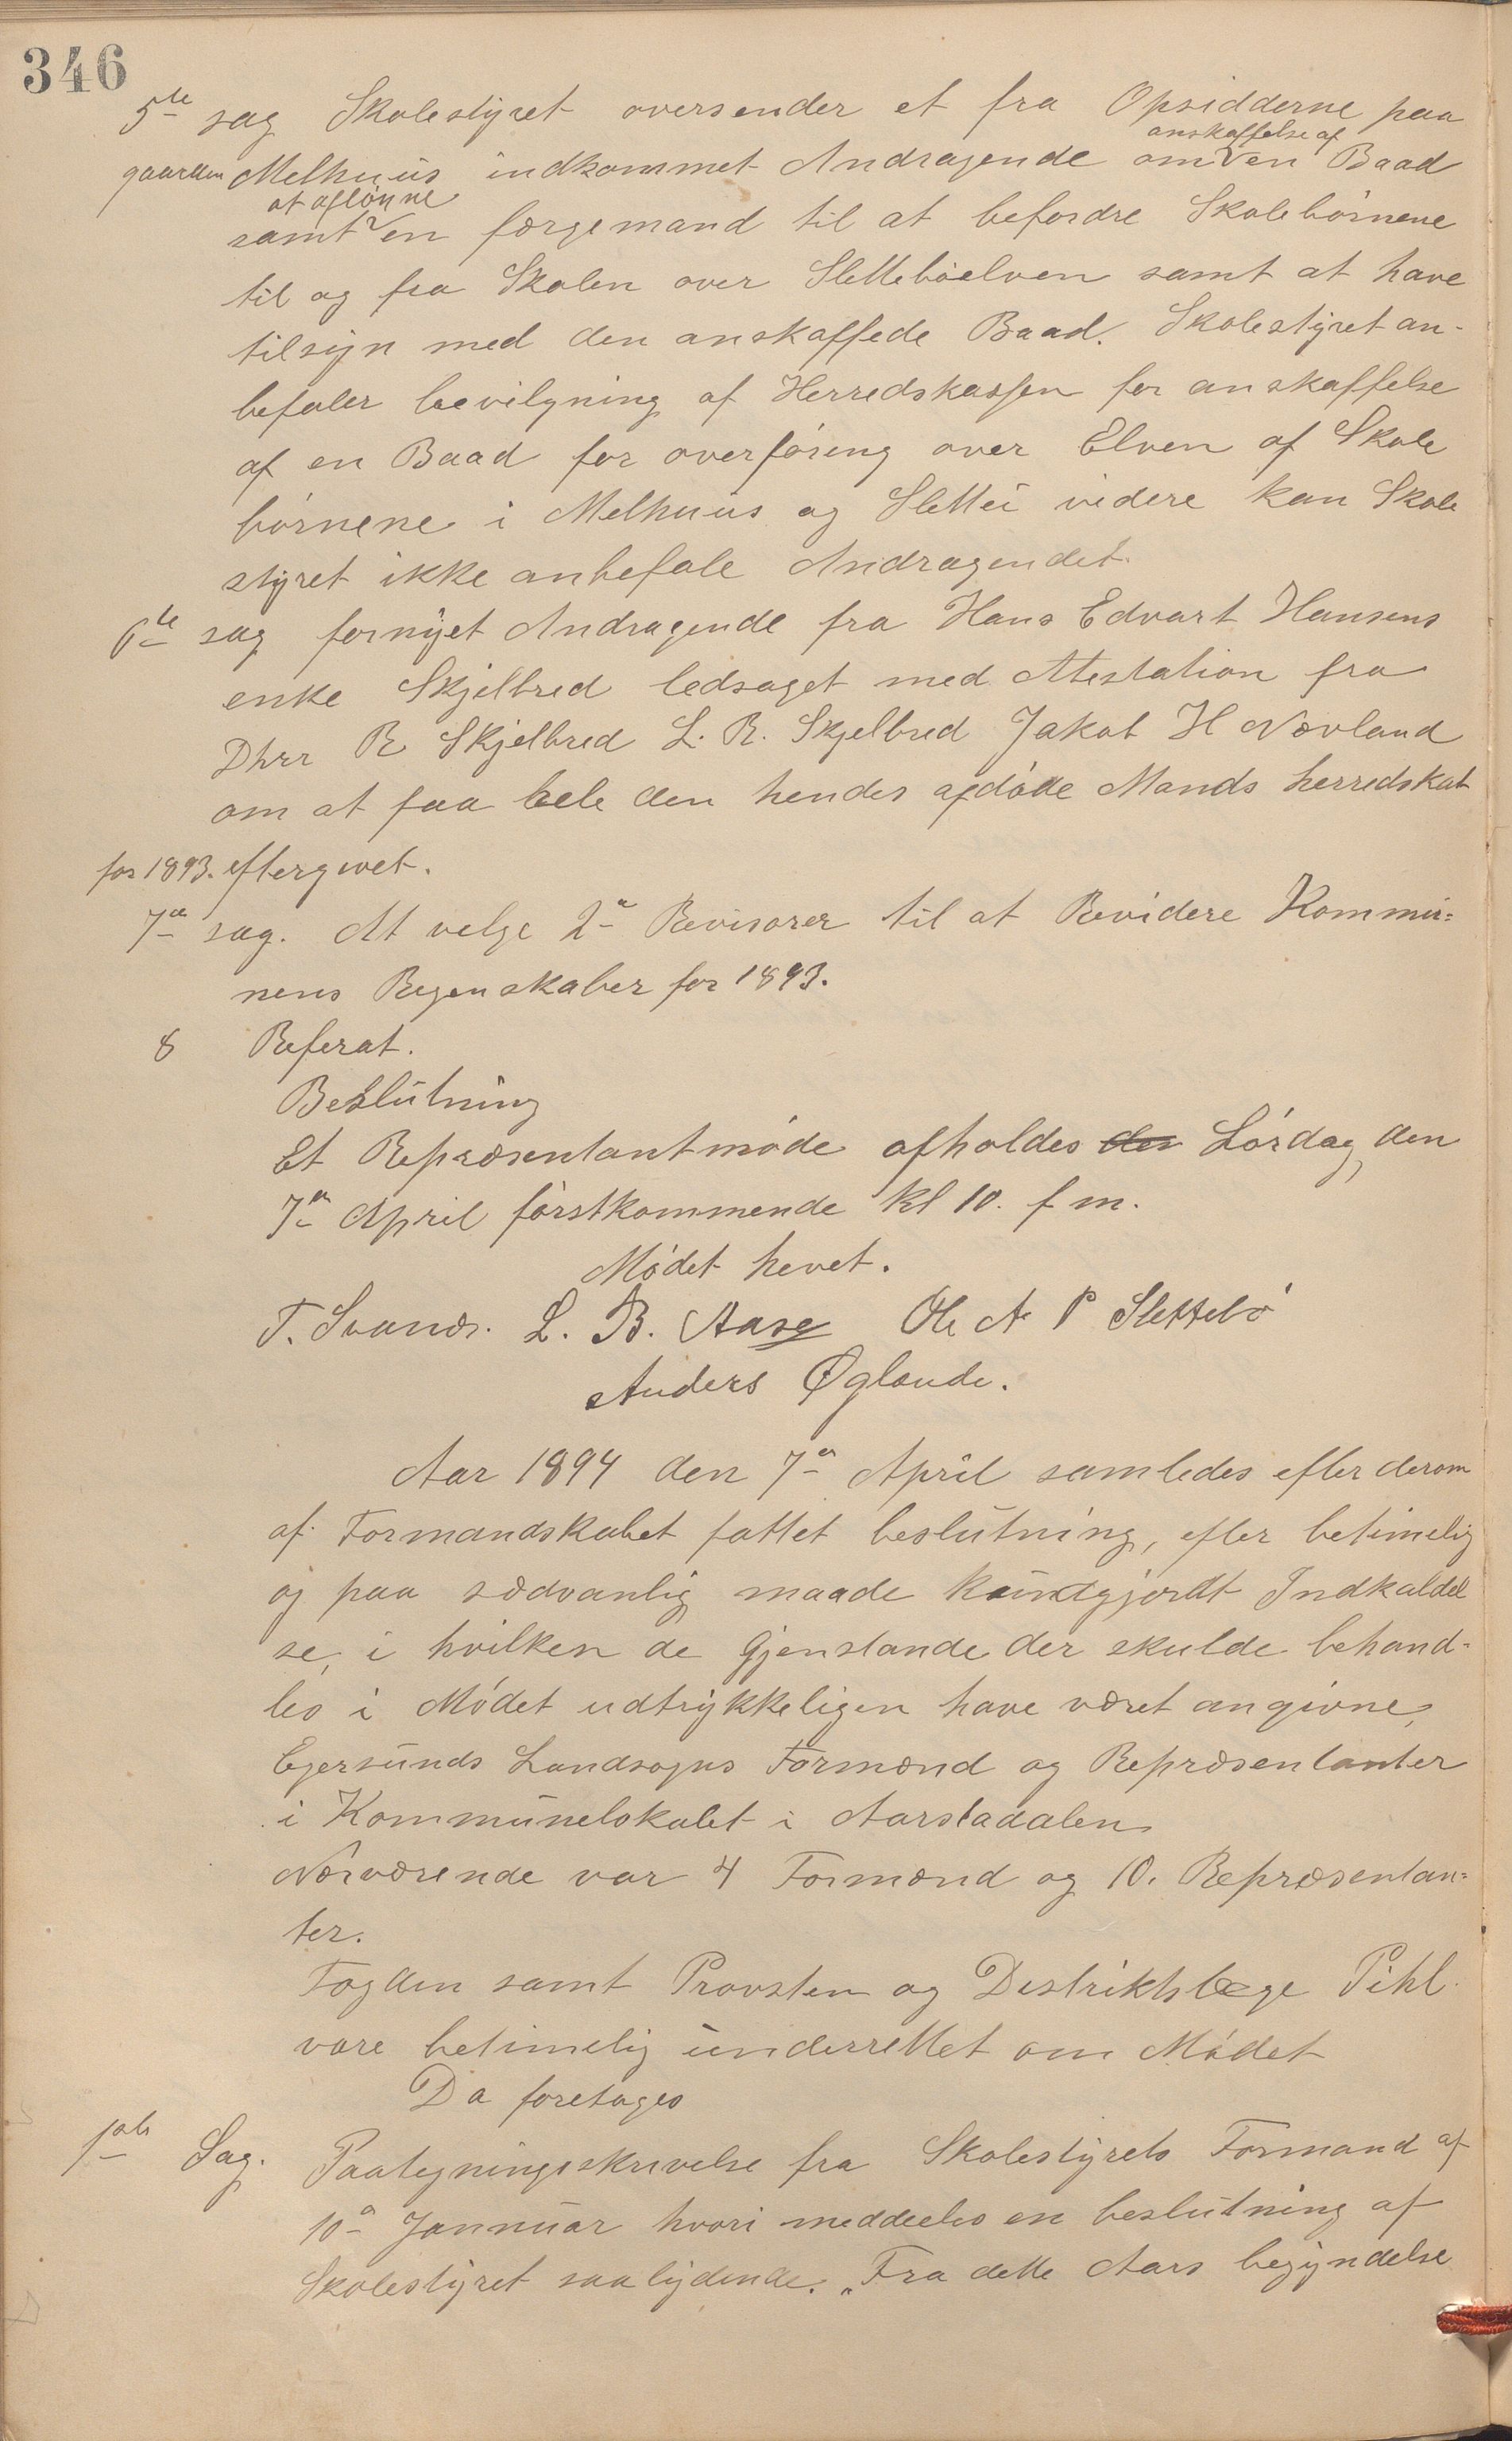 346
5te sag Skolestyret oversender et fra Opsidderne paa
gaarden Melhuus indkommet Andragende om anskaffelse af en Baad
samt at aflønne en færgemand til at befordre Skolebørnene
til og fra Skolen over Slettebøelven samt at have
tilsyn med den anskaffede Baad. Skolestyret an-
befaler bevilgning af Herredskassen for anskaffelse
af en Baad for overføring over Elven af Skole
børnene i Melhuus og Slettei videre kan Skole
styret ikke anbefale Andragendet.
6te sag fornyet Andragende fra Hans Edvart Hansens
enke Skjelbred ledsaget med Atestation fra
Dhrr R Skjelbred L. R. Skjelbred Jakob H Nævland
om at faa hele den hendes afdøde Mands herredskat
for 1893. eftergivet.
7de sag. At velge 2de Revisorer til at Revidere Kommu=
nens Regenskaber for 1893.
8 Referat.
Beslutning
Et Repræsentantmøde afholdes den Lørdag, den
7de April førstkommende kl 10. f m.
Mødet hevet.
T. Svanæs. L. B. Aase Ole A P Slettebø
Anders Øglænde.
Aar 1894 den 7de April samledes efter derom
af Formandskabet fattet beslutning, efter betimelig
og paa sædvanlig maade kundtgjordt Indkaldel
se, i hvilken de Gjenstande der skulde behand-
les i Mødet udtrykkeligen have været angivne,
Egersunds Landsogns Formænd og Repræsentanter
i Kommunelokalet i Aarstadalen
Nærværende var 4 Formænd og 10. Repræsentan=
ter.
Fogden samt Provsten og Destriktslæge Pihl
vare betimelig underrettet om Mødet
Da foretages
1ste Sag. Paategningsskrivelse fra Skolestyrets Formand af
10de Jannuar hvori meddeeles en beslutning af
Skolestyret saalydende. „Fra dette Aars begyndelse